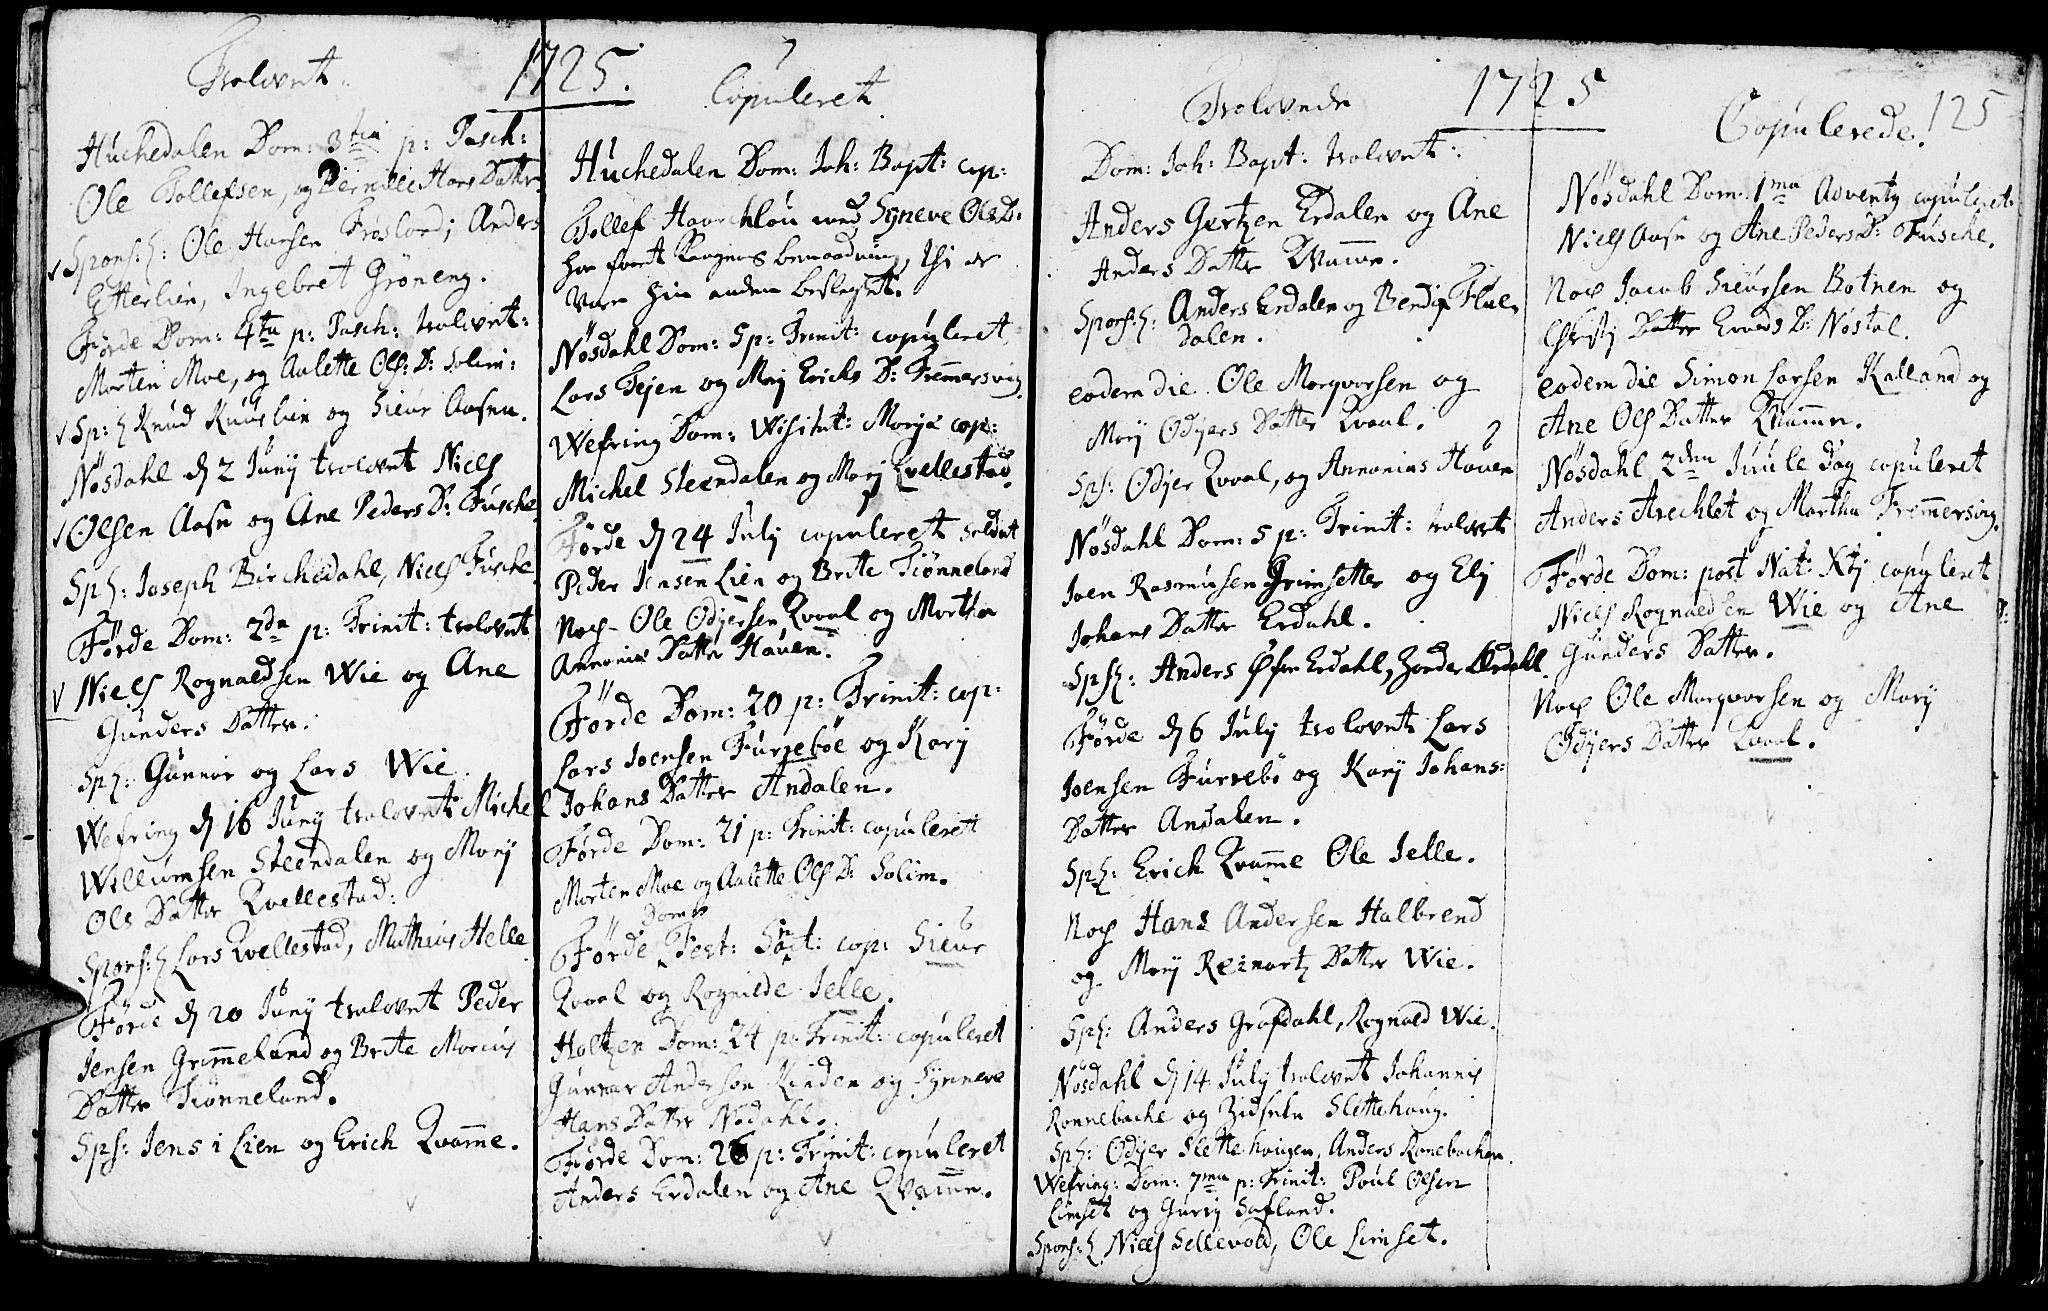 Trolovet.
1725.
Huchedalen Dom: 3tia p: Pasch:
Ole Tollefsen, og Pernille Hans Datter
Spons:: Ole Hansen Anders
Etterlien, Ingebret Gröneng.
Förde Dom: 4ta p: Pasch: trolovet:
Morten Moe, og Aalette Ols: D: Solim:
Sp: Knud og Sieur Aasen.
Nösdahl d 2 Junij trolovet Niels
Olsen Aase og Ane Peders D: Fusche
Sp: Joseph Birchedahl, Niels Fusche
Förde Dom: 2da p: Trinit: trolovet
Niels Rognaldsen Wie og Ane
Gunders Datter.
Sp: Gunnar og Lars Wie.
Wefring d 16 Junij trolovet Michel
Willumsen Steendalen og Marj
Ols Datter Qvellestad:
Spons: Lars Qvellestad, Mathias Helle
Förde d 20 Junij trolovet Peder
Jensen Grimmeland og Brite Marcus
Datter Tiönneland.
Sps: Jens i Lien og Erich Qvamme.
Copuleret
Huchedalen Dom: Joh: Bapt: cop:
Tollef med Syneve Ols D:
har faaet Kongens benaadning, thi de
vare hin anden beslegtet.
Nösdahl Dom: 5 p: Trinit: copuleret
Lars Tejen og Marj Erichs D: Fremmersvig.
Wefring Dom: Visitat: Mariæ cop:
Michel Steendalen og Marj Qvellestad.
Förde d 24 Julij copuleret Soldat
Peder Jensen Lien og Brite Tiönneland
Noch Ole Odjersen Qvaal og Martha
Annanias Datter Hauen.
Förde Dom: 20 p: Trinit: cop:
Lars Joensen Furreböe og Karj
Johans Datter Andalen.
Förde Dom: 21 p: Trinit: copuleret
Morten Moe og Aalette Ols D: Solim.
Dom:
Förde Fest: Sanct: cop: Sieur
Qvaal og Rognilde Jelle.
Holtzen Dom: 24 p: Trinit: copuleret
Gunnar Andersen Kinden og Synneve
Hans Datter Nedahl.
Förde Dom: 26 p: Trinit: copuleret
Anders Erdalen og Ane Qvamme.
Trolovede
1725
Dom: Joh: Bapt: trolovet:
Anders Gertzen Erdalen og Ane
Anders Datter Kvamme.
Spons: Anders Erdalen og Bendix
dalen.
eodem die Ole Marqvorsen og
Marj Odjers Datter Qvaal.
Sps: Odjer Qvaal, og Annanias Hauen
Nösdahl Dom: 5 p: Trinit: trolovet
Joen Rasmusen Grimsetter og Elj
Johans Datter Erdahl.
Sps: Anders Öfre Erdahl,
Förde d 6 Julij trolovet Lars
Joensen Furrebö og Karj Johans:
Datter Andalen.
Sp: Erich Qvamme Ole Jelle.
Noch Hans Andersen Halbrend
og Marj Reinartz Datter Wie.
Sp: Anders Grafdahl, Rognald Wie.
Nösdahl d 14 Julij trolovet Johannis
Ronnebache og Zidsele Slettehaug.
Sp: Odjer Slettehaugen, Anders Ronebachen.
Wefring: Dom: 7ma p: Trinit: Poul Olsen
Limset og Gurij Safland.
Spons: Niels Sellevold, Ole Limset.
Copulerede.
125
Nösdahl Dom: 1ma Adventq copuleret:
Niels Aase og Ane Peders D: Fusche.
Noch Jacob Sieursen Botnen og
Christj Datter D: Nöstal.
eodem die Simon Larsen Kalland og
Ane Ols Datter Kvamme.
Nösdahl 2den Juule dag copuleret
Anders Arechlet og Martha Fremmersvig.
Förde Dom: post Nat: Xtj copuleret
Niels Rognaldsen Wie og Ane
Gunders Datter.
Noch Ole Marqvorsen og Marj
Odjers Datter Qvaal.